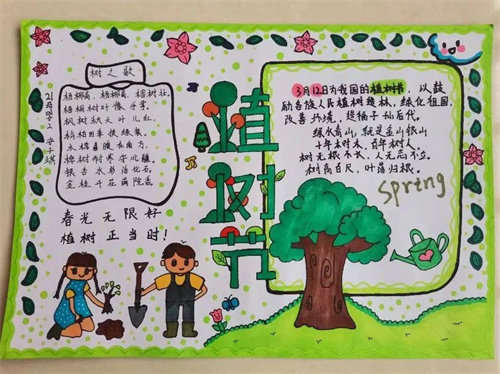 树之歌
梧桐树叶像手掌,
枫树秋天叶儿红,
松柏四季披绿装,
木棉喜暖在南方,
桦树耐寒守北疆,
银杏水杉活化石,
金桂开花满院香。
春光无限好
植树正当时!
植树节
3月12日为我国的植树节,以鼓
励各族人民植树造林,绿化祖国,
改善环境,造福子孙后代。
绿水青山,就是金山银山
十年树木,百年树人。
树无根不长,人无志不立。
树高百尺,叶落归根。
Spring